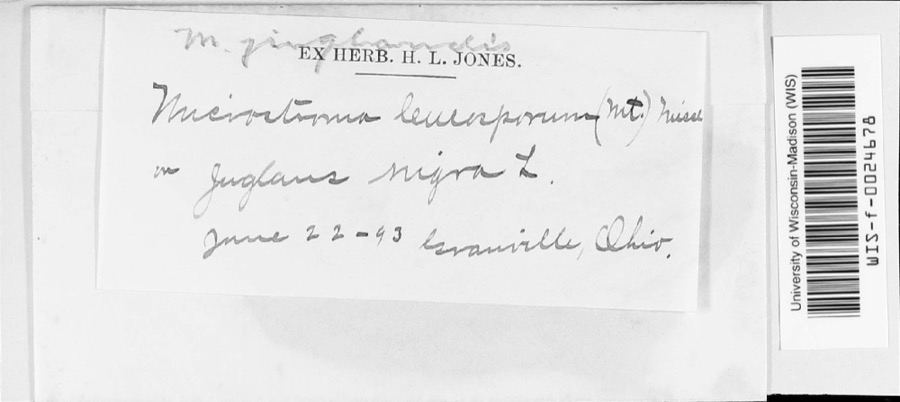 M. juglandis
EX HERB. H. L. JONES.
Microstroma leucosporum (Mt.) Niessl
on Juglans nigra L.
June 22-93 Granville, Ohio.
University of Wisconsin-Madison (WIS)
WIS-f-0024678